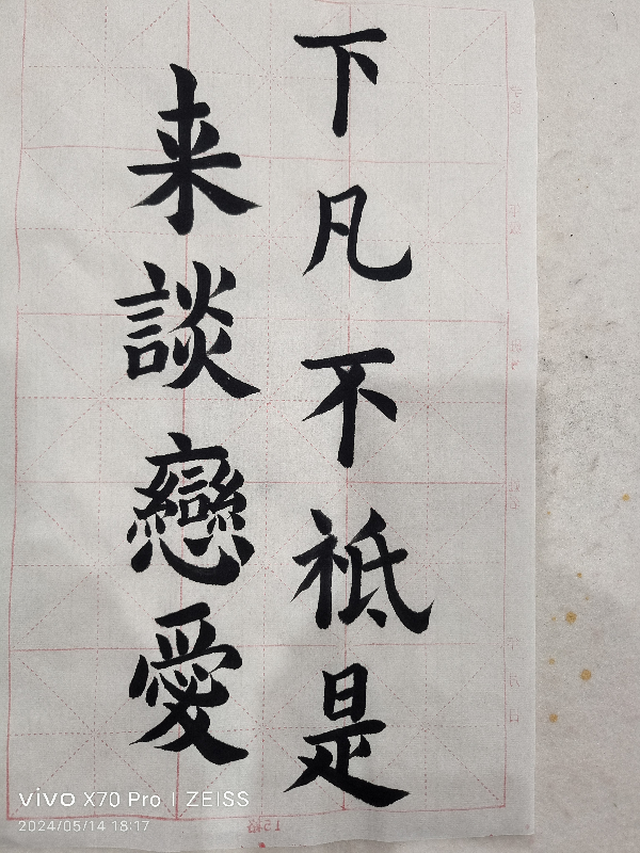 下凡不祗是
来談戀愛
vivo X70 Pro | ZEISS
2024/05/14 18:17